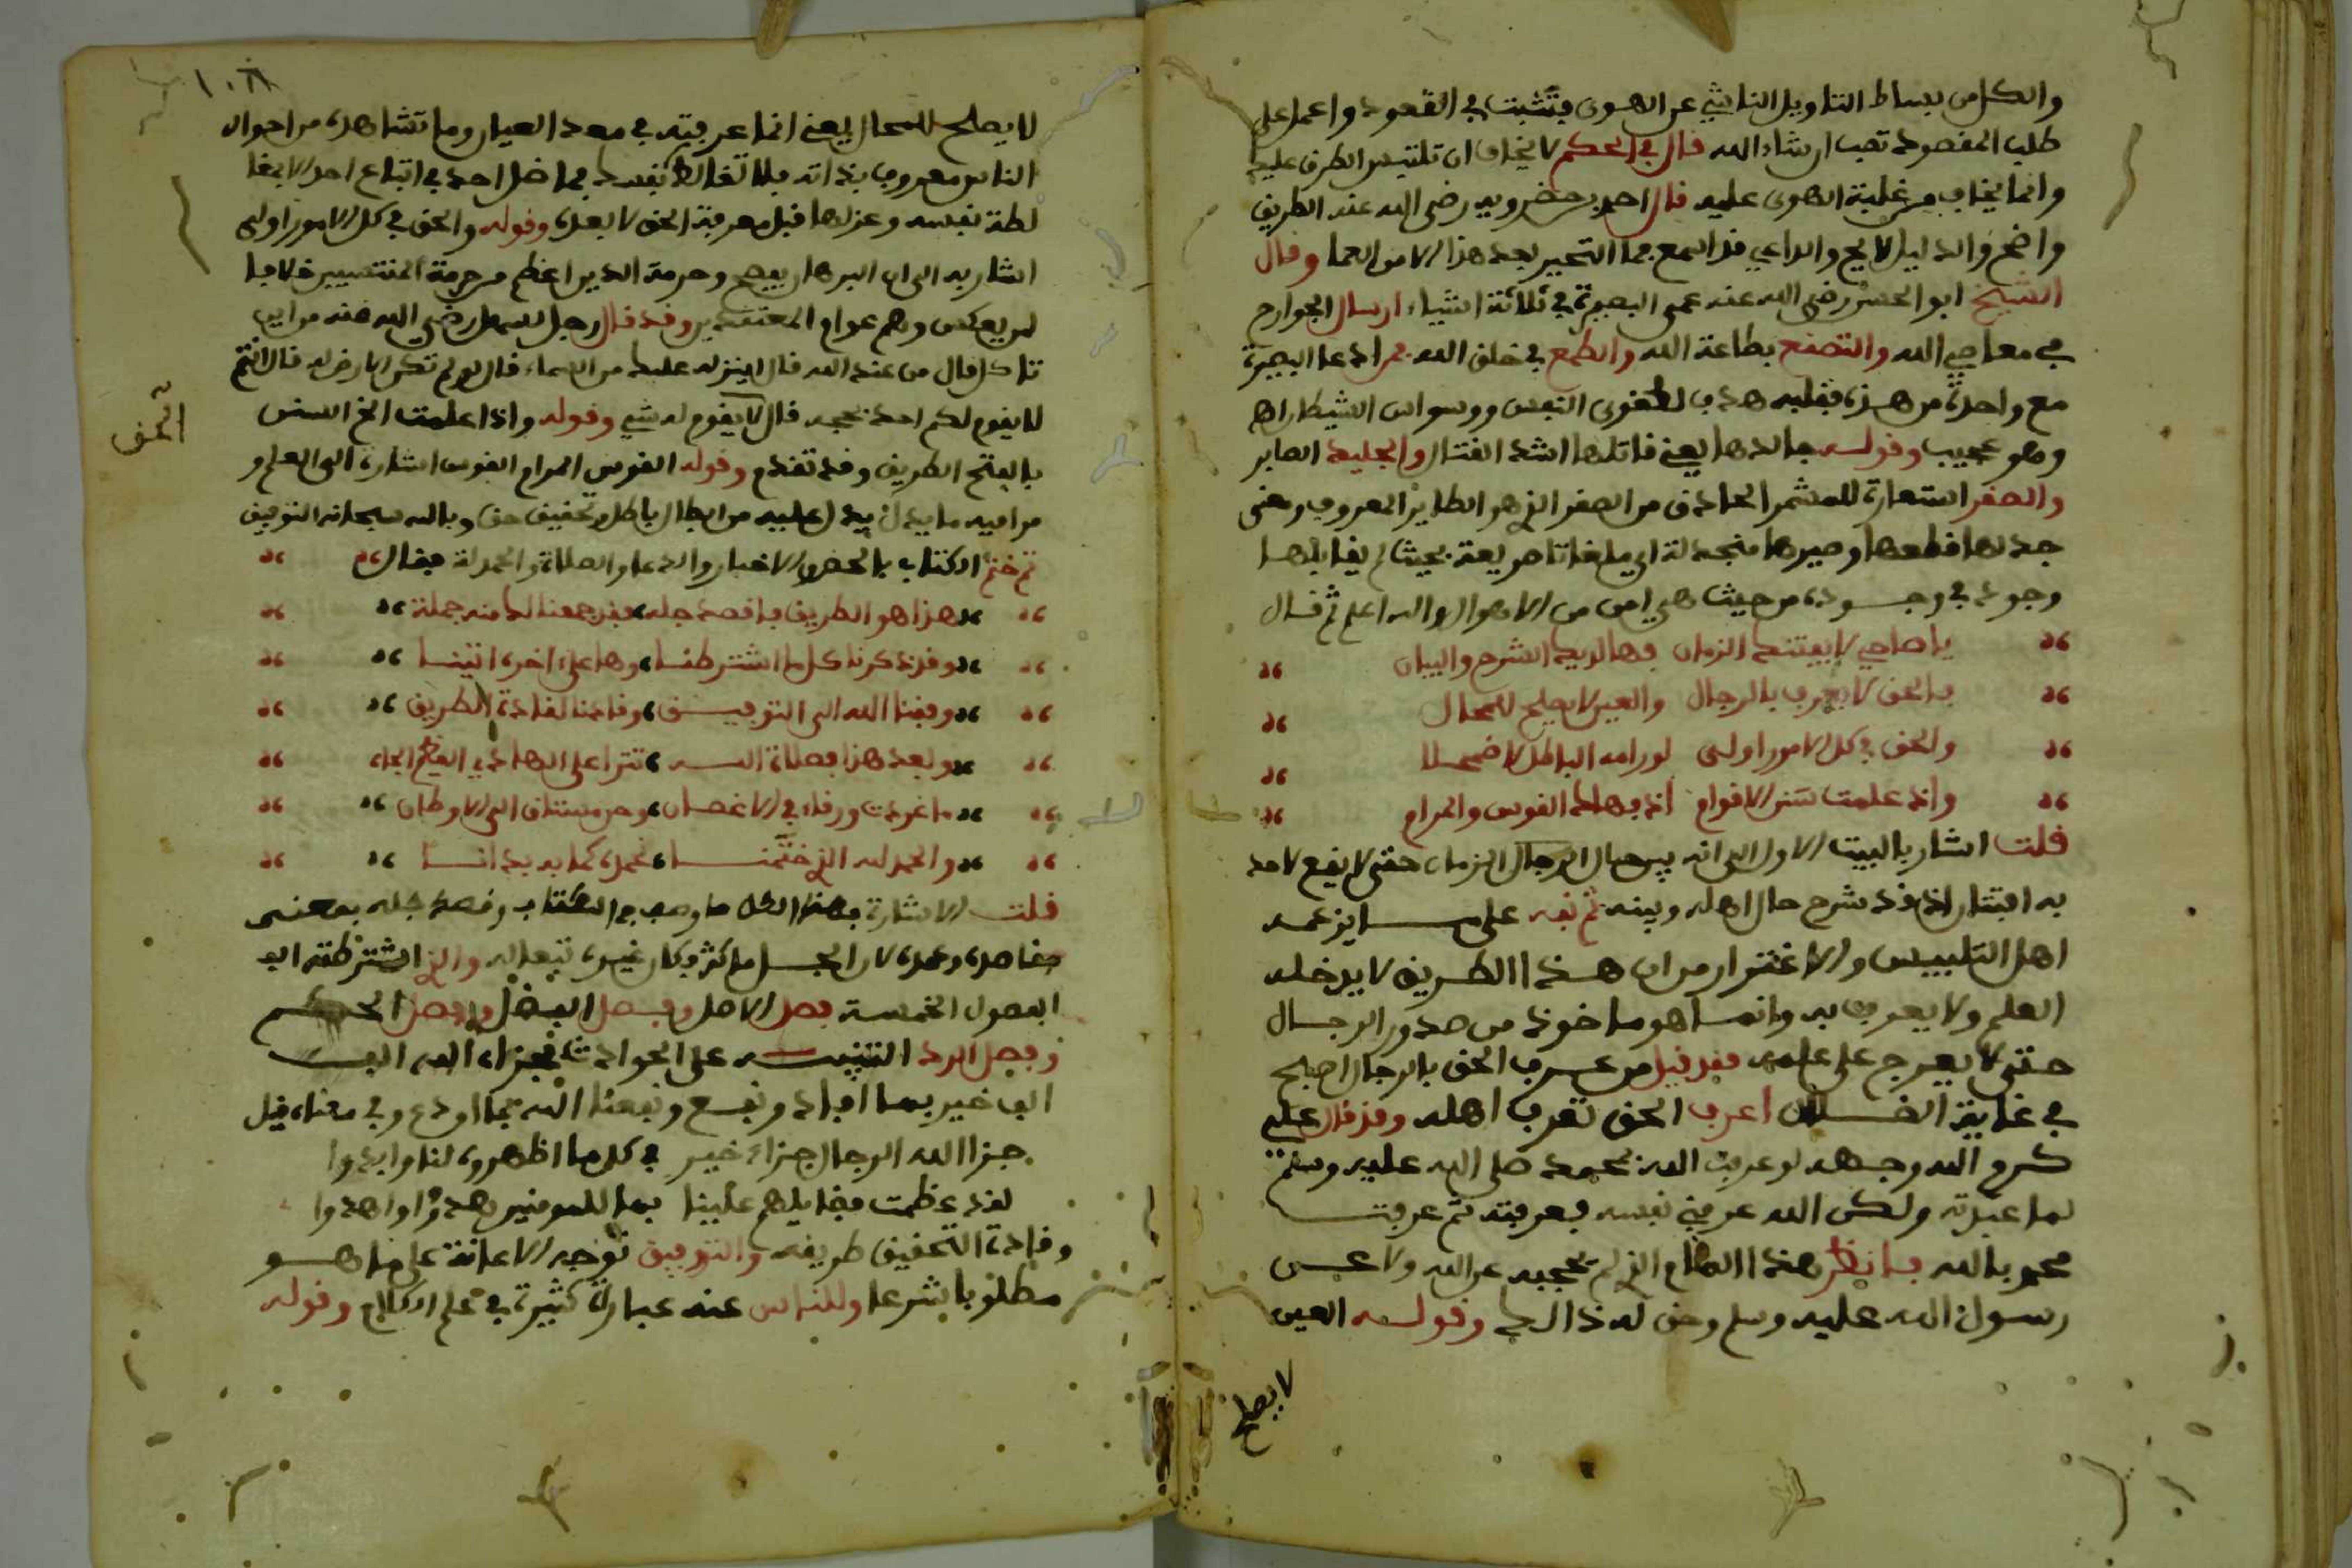 والكل من بساط التاويل الناشي عن الهوى فتثبت في القصود واعمل على
طلب المقصود تصب ان شاء الله قال في الحكم لا يخاف ان تلتبس الطرق عليك
وانما يخاف من غلبة الهوى عليك قال احمد بن خضرويه رضي الله عنه الطريق
واضح والدليل لايح والداعي قد اسمع فما التحير بعد هذا الا من العما وقال
الشيخ ابو الحسن رضي الله عنه عمى البصيرة في ثلاثة اشياء ارسال الجوارح
في معاصي الله والتصنع بطاعة الله والطمع في خلق الله فمن ادعا البصيرة
مع واحدة من هذه فقلبه هدف لظنون النفس ووسواس الشيطان اه
وهو عجيب وقوله جالدها يعني قاتلها اشد القتال والجليد الصابر
والصقر استعارة للمشمر الحاذق من الصقر الذي هو الطاير المعروف ومعنى
جدلها قطعها وصيرها منجدلة اي ملقاتا صريعة بحيث لم يقابلها
وجود في وجوده من حيث هي امن من الاهوال والله اعلم ثم قال
يا صاحبي لا يفتنك الزمان فهالديك الشرح والبيان
فالحق لا يعرف بالرجال والعين لا يصلح للمحال
والحق في كل الامور اولى لو رامه الباطل لاضمحلا
واذ علمت سنن الاقوام اذ فهاك القوس والمرام
قلت اشار بالبيت الاول الى انه بين حال الرجال الزمان حتى لا يقع لاحد
به افتتان اذ قد شرح حال اهله وبينه ثم نبه على ما يزعمه
اهل التلبيس والاغترار من ان هذا الطريق لا يدخله
العلم ولا يعرف به وانما هو ماخوذ من صدور الرجال
حتى لا يعرج على علمه فقد قيل من عرف الحق بالرجال اصبح
في غاية الضلال اعرف الحق تعرف اهله وقد قال علي
كرم الله وجهه لو عرفت الله بمحمد صلى الله عليه وسلم
لما عبدته ولكن الله عرفني نفسه فعرفته ثم عرفت
محمد بالله فانظر هذا الامام الذي لم يحجبه عن الله ولا عن
رسول الله عليه وسلم وحق له ذالك وقوله العين
لا يصلح
١٠٨
لا يصلح للمحال يعني انما عرفته في معد العيان وما تشاهده من احوال
الناس معروف بذاته فلا تغالط نفسك فما ضل احد في اتباع احد الا بمغا
لطة نفسه وعزلها قبل معرفة الحق لا بعده وقوله والحق في كل الامور اولى
اشار به الى ان البرهان يصح وحرمة الدين اعظم من حرمة المنتسبين خلافا
لمن يعكس وهم عوام المعتقدين وقد قال رجل لسهل رضي الله عنه من اين
تاكل قال من عند الله قال اينزله عليك من السماء قال لو لم تكن الارض له قال انتم
لا يقوم لكم احد بحجة قال لا يقوم له شي وقوله واذا علمت الخ السنن
الحق
بالفتح الطريق وقد تقدم وقوله القوس المرام القوس اشارة الى العلم و
مراميه ما يدل عليه من ابطال باطل وتحقيق حق وبالله سبحانه التوفيق
ثم ختم الكتاب بالحض والاخبار والدعا والصلاة والحمدلة فقال
هذا هو الطريق فاقصد جله فقد جمعنا لك منه جمله
وقد ذكرنا كل ما اشترطنا وها على اخره اتينا
وفقنا الله الى التوفيق وقادنا لقادة الطريق
وبعد هذا فصلاة الله تترا على الهادي العظيم الجاه
ما غردت ورقاء في الاغصان وحن مشتاق الى الاوطان
والحمد لله الذي ختمنا بحمده كما به بدانا
قلت الاشارة بهذا الكل ما وصف في الكتاب وقصد جله بمعنى
مقاصده وعمده لان الجل ما كثر فكان غيره تبعا له والذي اشترطته الف
الفصول الخمسة فصل الاصل وفصل الفضل وفصل الحكم
وفصل الرد التنبيه على الحوادث فجزاه الله الف
الف خير بما افاد ونفع ونفعنا الله بما اودع وفي معناه قيل
جزا الله الرجال جزاء خير في كل ما اظهروه لنا وابدوا
لقد عظمت فضايلهم علينا بما للمومنين هدوا واهدوا
وقادة التحقيق طريقه والتوفيق توجه الاعانة على ما هو
مطلوبا شرعا وللناس عنه عبارة كثيرة في علم الكلام وقوله